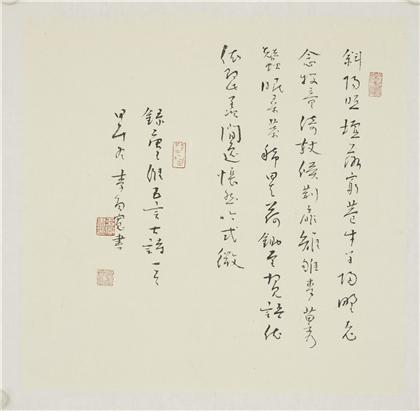 斜陽照墟落窮巷牛羊歸野老
念牧童倚杖候荊扉雉雊麥苗秀
蠶眠桑葉稀田夫荷鋤至相見語依
依即此羨閒逸悵然吟式微
錄唐王維五言古詩一首
李書